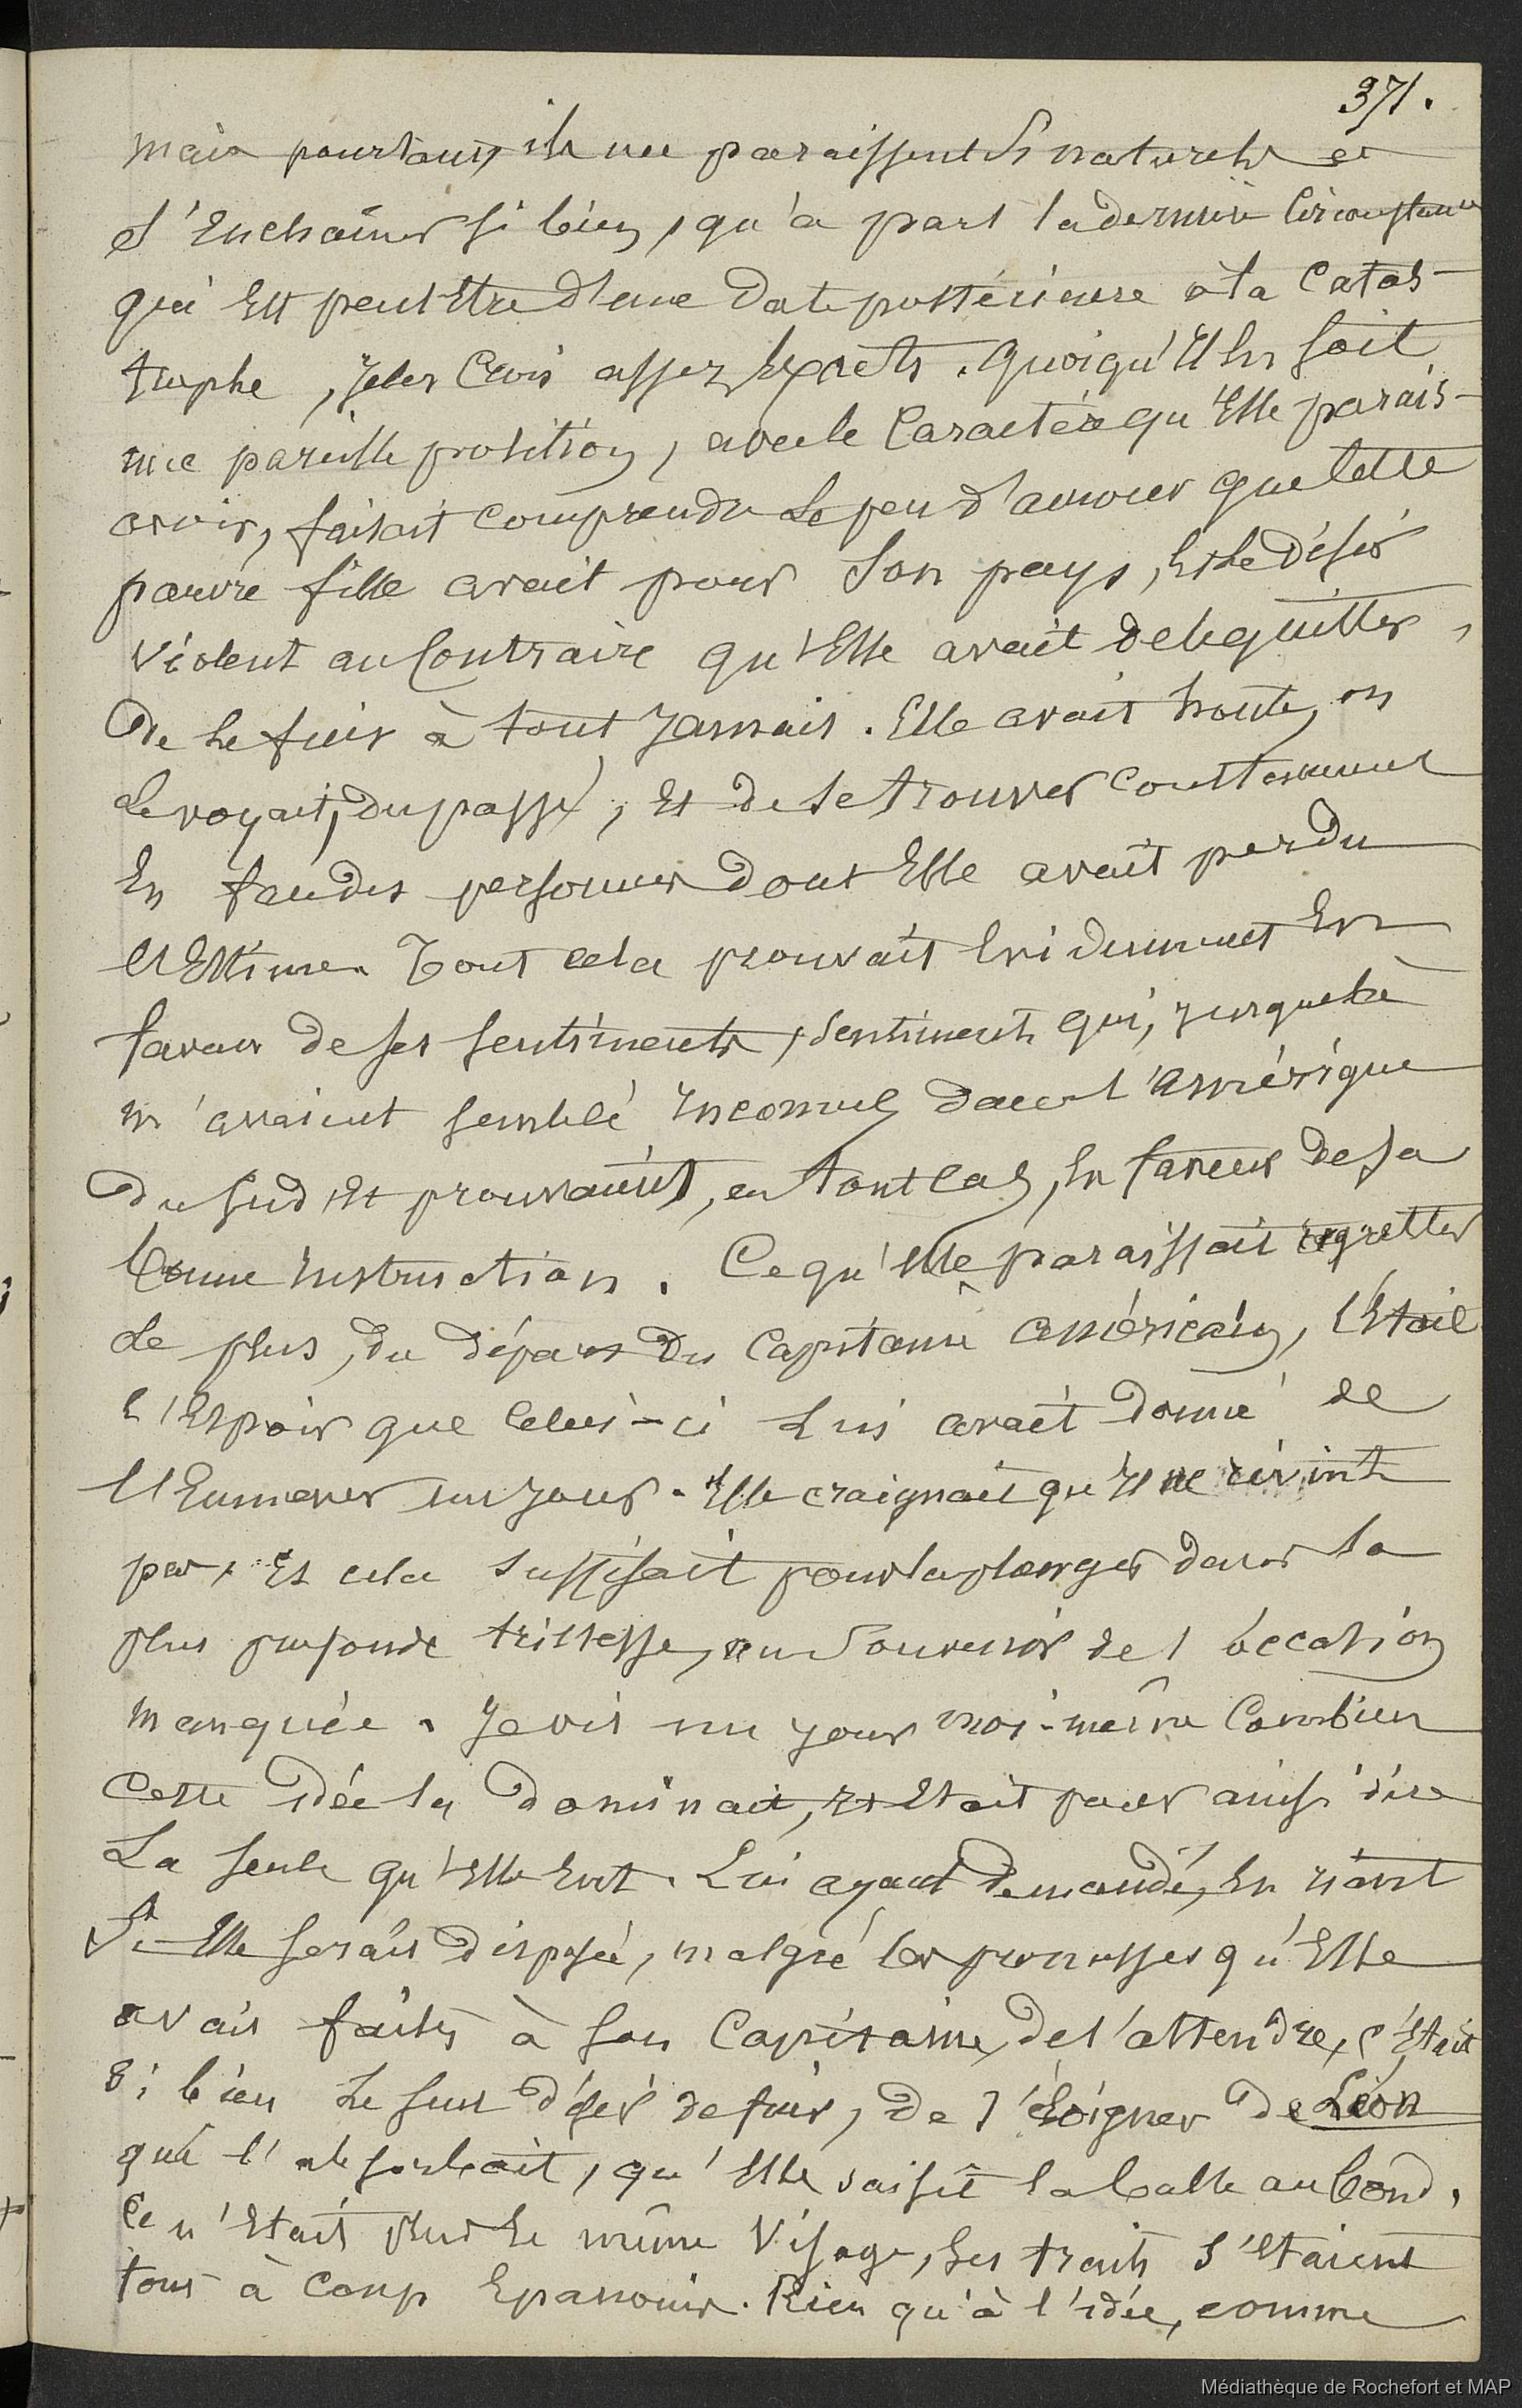 371.
mais pourtant, ils me paraissent si naturels et
s'Enchaîner si bien, qu'à part la dernière circonstance
qui Est peut Etre d'une date postérieure à la Catas-
trophe, Je les Crois assez Exacts. Quoiqu'Il En soit
une pareille position, avec le Caractère qu'Elle parais-
avoir, faisait comprendre le peu d'amour que cette
pauvre fille avait pour son pays, Et le désir
violent au Contraire qu'Elle avait de le quitter,
De le fuir à tout Jamais. Elle avait honte, on
le voyait, du passé, Et de se trouver constamment
En face des personnes dont Elle avait perdu
l'Estime. Tout cela prouvait Evidemment En
faveur de ses sentiments, sentiments qui, jusque là
m'avaient semblé Inconnus dans l'Amérique
du Sud Et prouvaient, en tout cas, En faveur de sa
bonne Instruction. Ce qu'Elle paraissait regretter
le plus, du départ du Capitaine américain, c'Etait
l'Espoir que Celui-ci Lui avait donné de
l'Emmener un jour. Elle craignait qu'Il ne revint
pas, Et cela suffisait pour la plonger dans la
plus profonde tristesse, au Souvenir de l'occasion
manquée. Je vis un jour moi-même Combien
Cette Idée la dominait, Et Etait pour ainsi dire
La seule qu'Elle Eut. Lui ayant demandé, En riant
Si Elle serait disposée, malgré les promesses qu'Elle
avait faites à son Capitaine, de l'attendre, c'Etait
si bien le seul désir de fuir, de s'éloigner de Léon
qui l'absorbait, qu'Elle saisit la balle au bond.
Ce n'Etait plus le même Visage, Ses traits s'Etaient
tout à coup Epanouis. Rien qu'à l'Idée, comme
Médiathèque de Rochefort et MAP